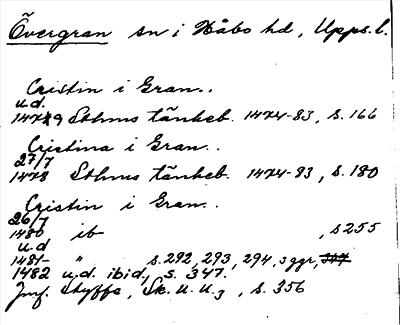 Övergran sn i Håbo hd, Upps. l.
Cristin i Gran..
u.d.
1479 Sthms tänkeb. 1474-83, s. 166
Cristina i Gran..
27/7
1478 Sthms tänkeb. 1474-83, s. 180
Cristin i Gran..
26/7
1480 ib , s 255
u.d
1481- " s. 292, 293, 294, 3 ggr,
1482 u.d. ibid., s. 347.
Jmf. Styffe, Sk. U. U. 3, s. 356